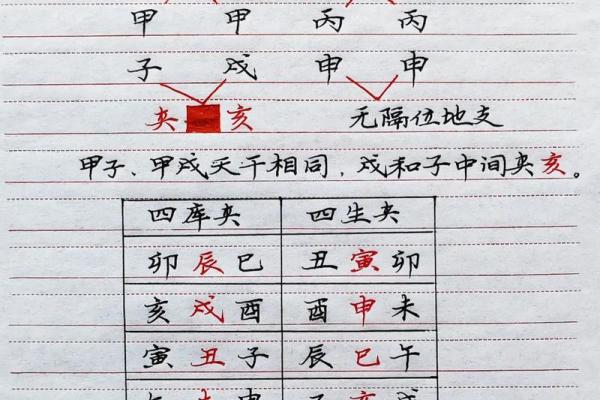 甲 甲 丙 丙
子 戌 申 申
夹 亥 无隔位地支
甲子、甲戌天干相同，戌和子中间夹亥。
四库夹 四生夹
卯辰巳 丑寅卯
亥戌酉 酉申未
寅丑子 辰巳午